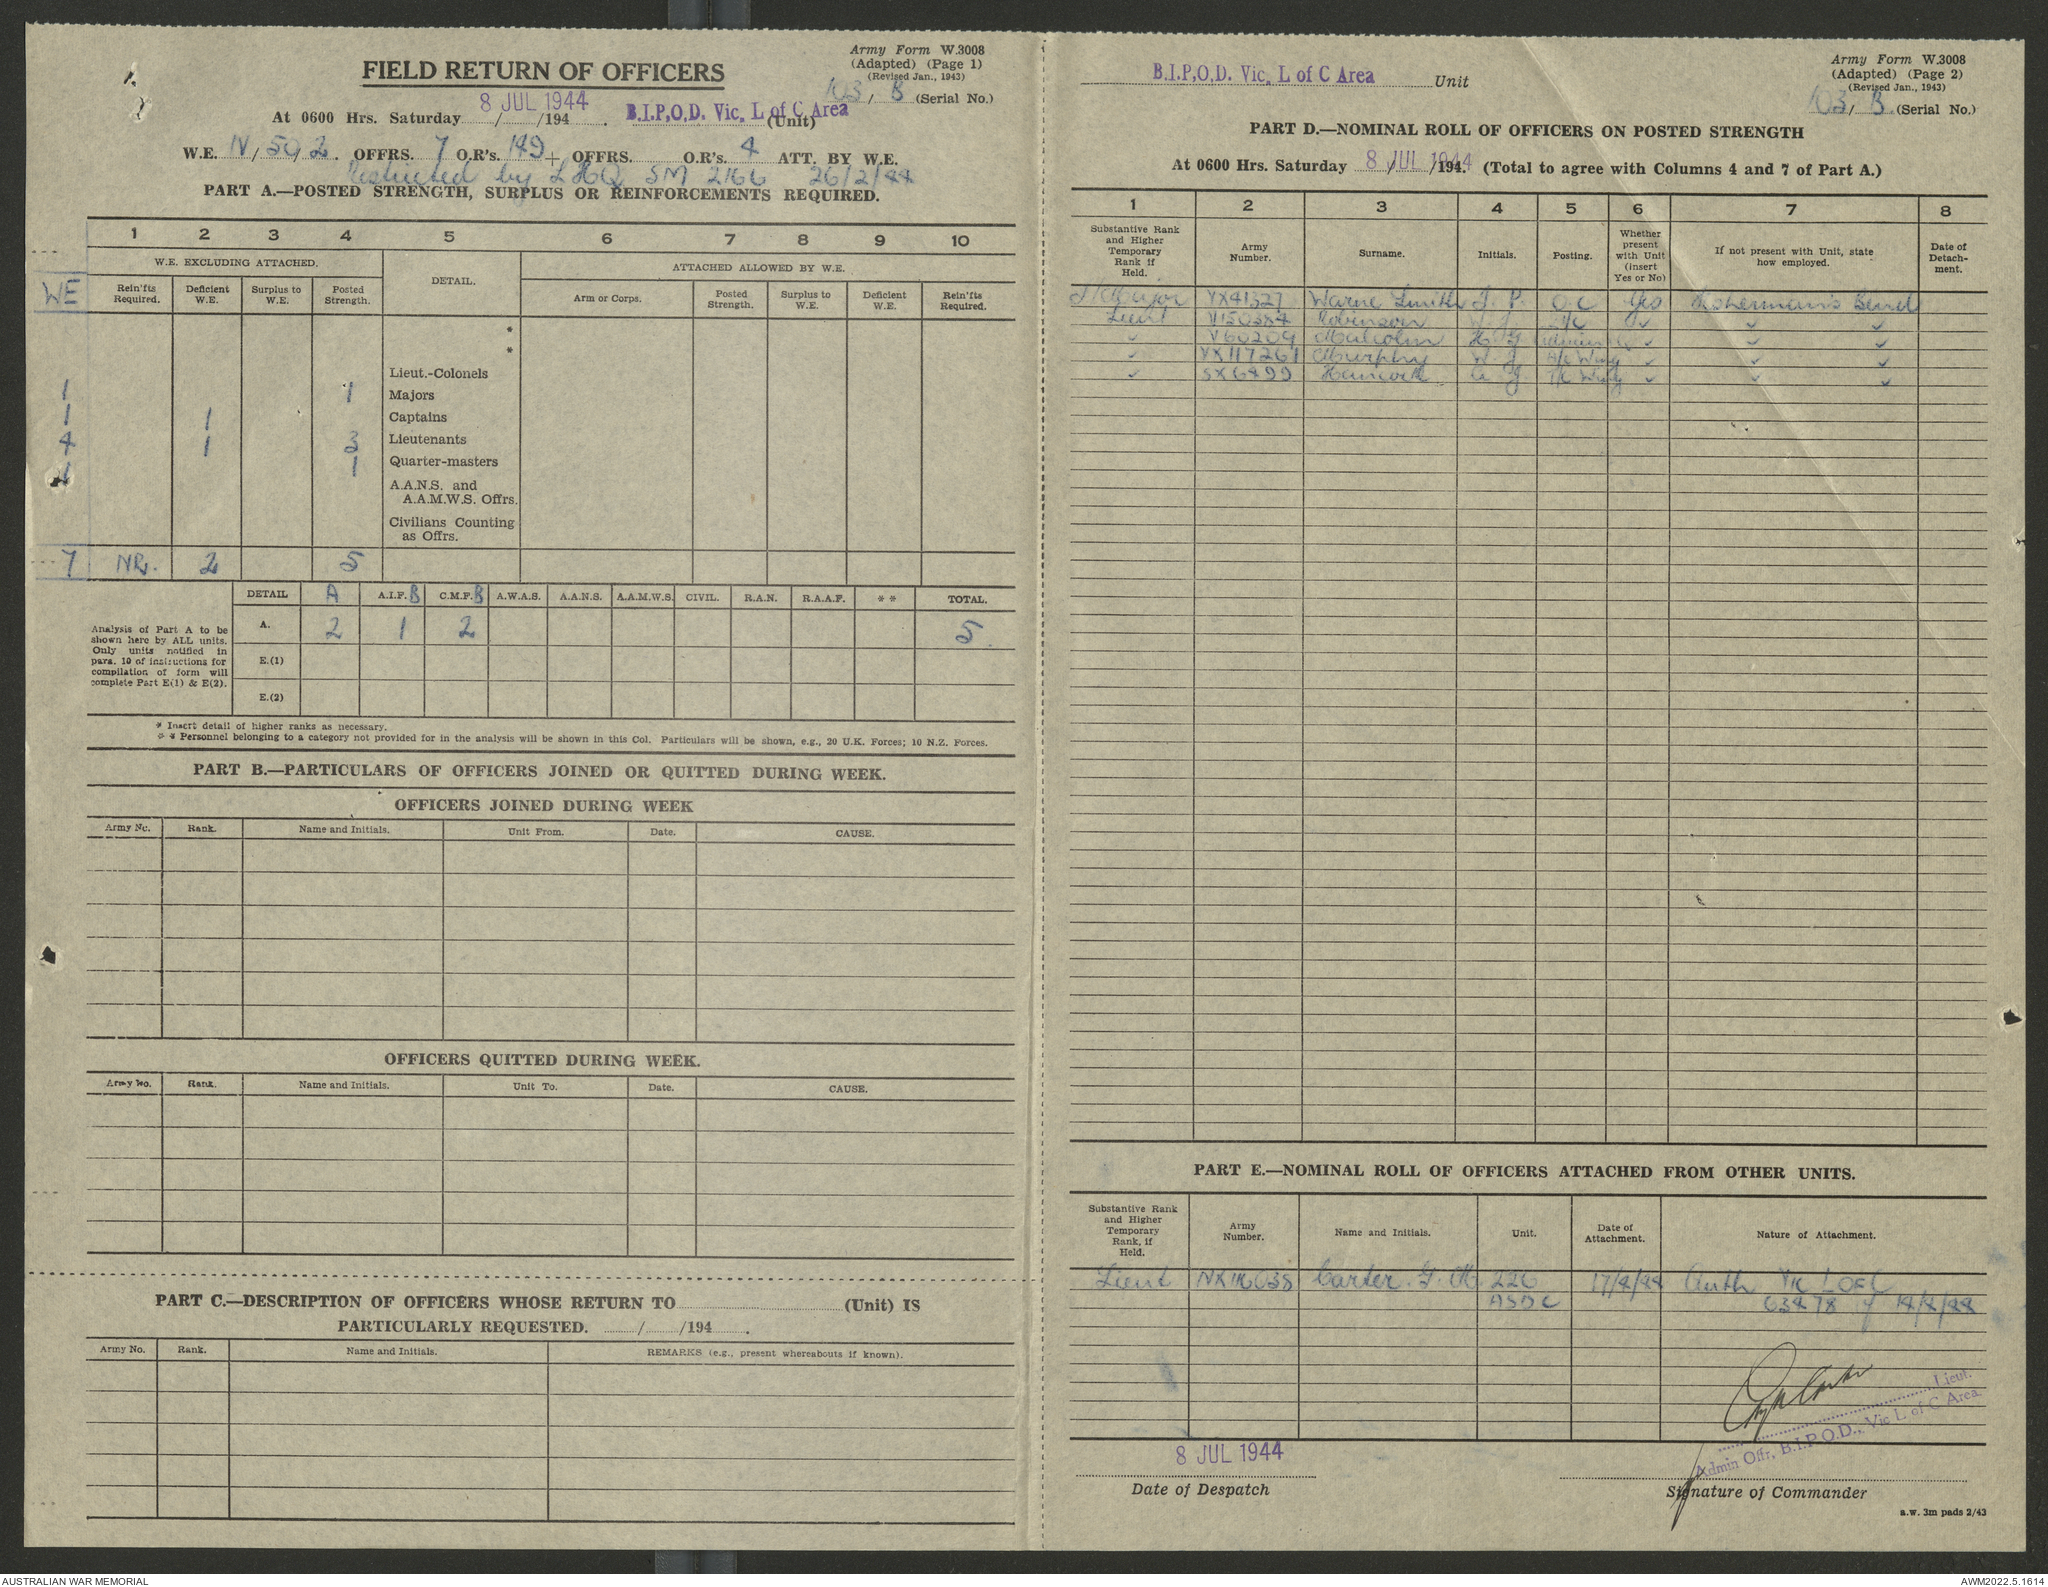 Army Form W.3008
(Adapted) (Page 1)
(Revised Jan., 1943)
FIELD RETURN OF OFFICERS
103/B (Serial No.)
At 0600 Hrs. Saturday 8 JUL 1944 / /194 . B.I.P.O.D. Vic. L of C Area (Unit)
W.E. IV/50/2. OFFRS. 7 O.R's. 149 + OFFRS. O.R's. 4 ATT. BY W.E.
Restricted by LHQ SM 2166 26/2/44
PART A.—POSTED STRENGTH, SURPLUS OR REINFORCEMENTS REQUIRED.
1 2 3 4 5 6 7 8 9 10
W.E. EXCLUDING ATTACHED. DETAIL. ATTACHED ALLOWED BY W.E.
WE Rein'fts Required. Deficient W.E. Surplus to W.E. Posted Strength. Arm or Corps. Posted Strength. Surplus to W.E. Deficient W.E. Rein'fts Required.
*
*
Lieut.-Colonels
1 1 Majors
1 1 Captains
4 1 3 Lieutenants
1 1 Quarter-masters
A.A.N.S. and
A.A.M.W.S. Offrs.
Civilians Counting
as Offrs.
7 NR. 2 5
DETAIL A A.I.F. B C.M.F. B A.W.A.S. A.A.N.S. A.A.M.W.S. CIVIL. R.A.N. R.A.A.F. * * TOTAL.
Analysis of Part A to be
shown here by ALL units.
Only units notified in
para. 10 of instructions for
compilation of form will
complete Part E(1) & E(2).
A. 2 1 2 5
E.(1)
E.(2)
* Insert detail of higher ranks as necessary.
* * Personnel belonging to a category not provided for in the analysis will be shown in this Col. Particulars will be shown, e.g., 20 U.K. Forces; 10 N.Z. Forces.
PART B.—PARTICULARS OF OFFICERS JOINED OR QUITTED DURING WEEK.
OFFICERS JOINED DURING WEEK
Army No. Rank. Name and Initials. Unit From. Date. CAUSE.
OFFICERS QUITTED DURING WEEK.
Army No. Rank. Name and Initials. Unit To. Date. CAUSE.
PART C.—DESCRIPTION OF OFFICERS WHOSE RETURN TO (Unit) IS
PARTICULARLY REQUESTED. / /194 .
Army No. Rank. Name and Initials. REMARKS (e.g., present whereabouts if known).
Army Form W.3008
(Adapted) (Page 2)
(Revised Jan., 1943)
B.I.P.O.D. Vic. L of C Area Unit
103/B. (Serial No.)
PART D.—NOMINAL ROLL OF OFFICERS ON POSTED STRENGTH
At 0600 Hrs. Saturday 8 JUL 1944 / /194 . (Total to agree with Columns 4 and 7 of Part A.)
1 2 3 4 5 6 7 8
Substantive Rank and Higher Temporary Rank if Held. Army Number. Surname. Initials. Posting. Whether present with Unit (insert Yes or No) If not present with Unit, state how employed. Date of Detach-ment.
Major VX41327 Warne Smith I. P. O.C Yes Fishermans Bend
Lieut V150384 Robinson ✓ ✓ ✓
✓ V60209 Malcolm H. G Admin ✓ ✓ ✓
✓ VX117261 Murphy W. J ✓ ✓ ✓
✓ SX6499 Hancock A. J. ✓ ✓ ✓
PART E.—NOMINAL ROLL OF OFFICERS ATTACHED FROM OTHER UNITS.
Substantive Rank and Higher Temporary Rank, if Held. Army Number. Name and Initials. Unit. Date of Attachment. Nature of Attachment.
Lieut NX116038 Carter. G. H 226 17/4/44 Auth Vic L OF C
ASDC 63478 of 14/4/44
8 JUL 1944
Date of Despatch
Lieut.
Admin Offr, B.I.P.O.D., Vic L of C Area
Signature of Commander
a.w. 3m pads 2/43
AUSTRALIAN WAR MEMORIAL AWM2022.5.1614